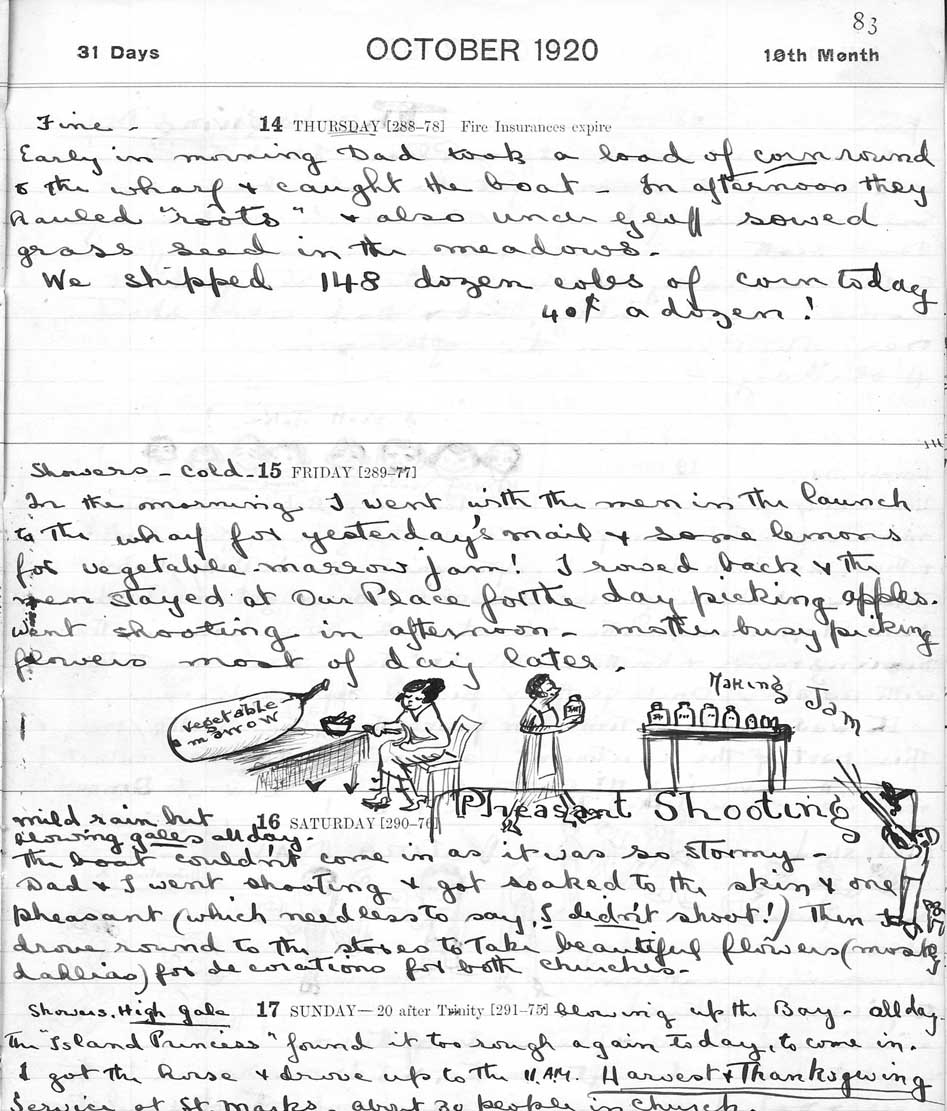 83
31 Days OCTOBER 1920 10th Month
Fine - 14 THURSDAY [288-78] Fire Insurances expire
Early in morning Dad took a load of corn round
to the wharf & caught the boat - In afternoon they
hauled "roots" & also uncle Geoff sowed
grass seed in the meadows.
We shipped 148 dozen cobs of corn today
40¢ a dozen!
Showers - Cold - 15 FRIDAY [289-77]
In the morning I went with the men in the launch
to the wharf for yesterday's mail & some lemons
for vegetable-marrow jam! I rowed back & the
men stayed at Our Place for the day picking apples.
Went shooting in afternoon - mother busy picking
flowers most of day later.
Making Jam
vegetable marrow
JAM
Pheasant Shooting
mild rain but
blowing gales all day. 16 SATURDAY [290-76]
The boat couldn't come in as it was so stormy -
Dad & I went shooting & got soaked to the skin & one
pheasant (which needless to say, I didn't shoot!) Then
drove round to the stores to take beautiful flowers (mostly
dahlias) for decorations for both churches -
Showers. High gale 17 SUNDAY—20 after Trinity [291-75] blowing up the Bay - all day.
The "Island Princess" found it too rough again today, to come in.
I got the horse & drove up to the 11 A.M. Harvest & Thanksgiving
Service at St Marks - about 30 people in church.